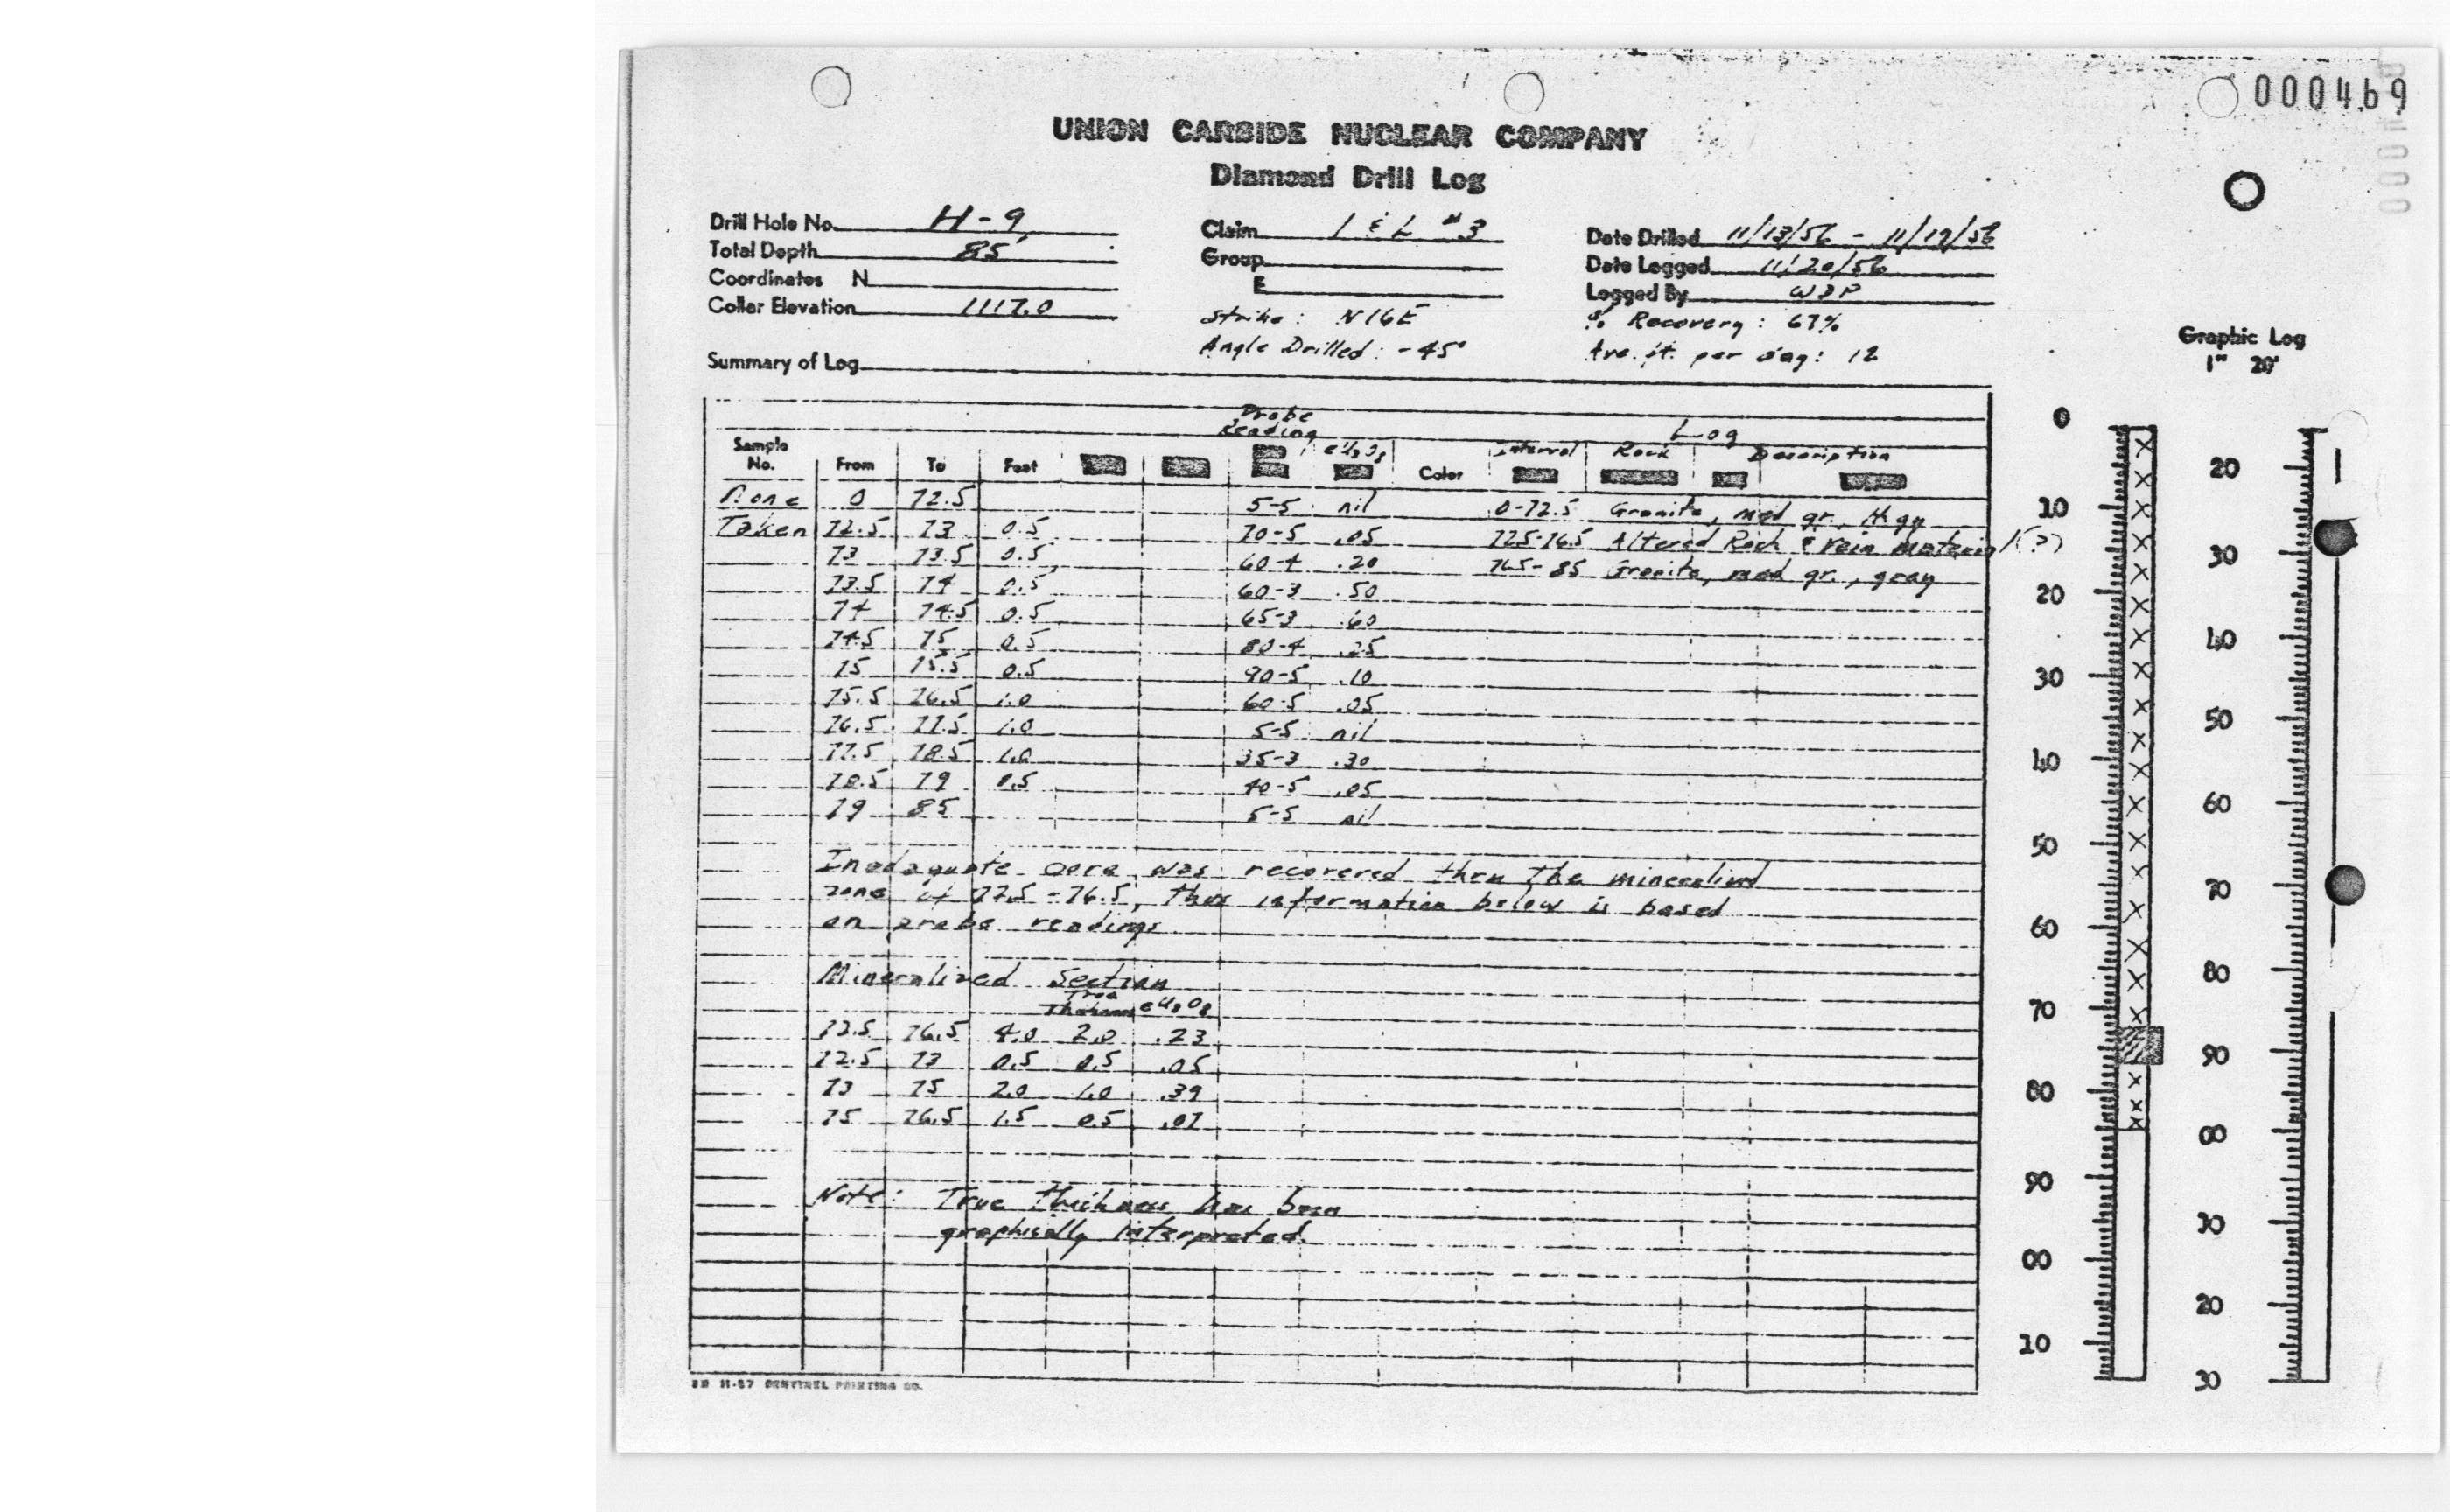 000469
UNION CARBIDE NUCLEAR COMPANY
Diamond Drill Log
Drill Hole No. H-9 Claim L & L #3 Date Drilled 11/13/56 - 11/19/56
Total Depth 85' Group Date Logged 11/20/56
Coordinates N E Logged By WJP
Collar Elevation 1117.0 Strike: N16E % Recovery: 67%
Angle Drilled: -45° Ave. ft. per day: 12
Summary of Log
Graphic Log
1" 20'
Probe Reading Log
Sample No. From To Feet eU3O8 Color Interval Rock Description
None 0 72.5 5-5 nil 0-72.5 Granite, med gr., lt. gy
Taken 72.5 73 0.5 70-5 .05 72.5-76.5 Altered Rock & Vein Material (?)
73 73.5 0.5 60-4 .20 76.5-85 Granite, med gr., gray
73.5 74 0.5 60-3 .50
74 74.5 0.5 65-3 .60
74.5 75 0.5 80-4 .25
75 75.5 0.5 90-5 .10
75.5 76.5 1.0 60-5 .05
76.5 77.5 1.0 5-5 nil
77.5 78.5 1.0 35-3 .30
78.5 79 0.5 40-5 .05
79 85 5-5 nil
Inadaquate core was recovered thru the mineralized
zone of 72.5-76.5, thus information below is based
on probe readings.
Mineralized Section
True Thickness eU3O8
72.5 76.5 4.0 2.0 .23
72.5 73 0.5 0.5 .05
73 75 2.0 1.0 .39
75 76.5 1.5 0.5 .07
Note: True thickness has been
graphically interpreted.
SENTINEL PRINTING CO.
0
10
20
30
40
50
60
70
80
90
00
10
20
30
40
50
60
70
80
90
00
10
20
30